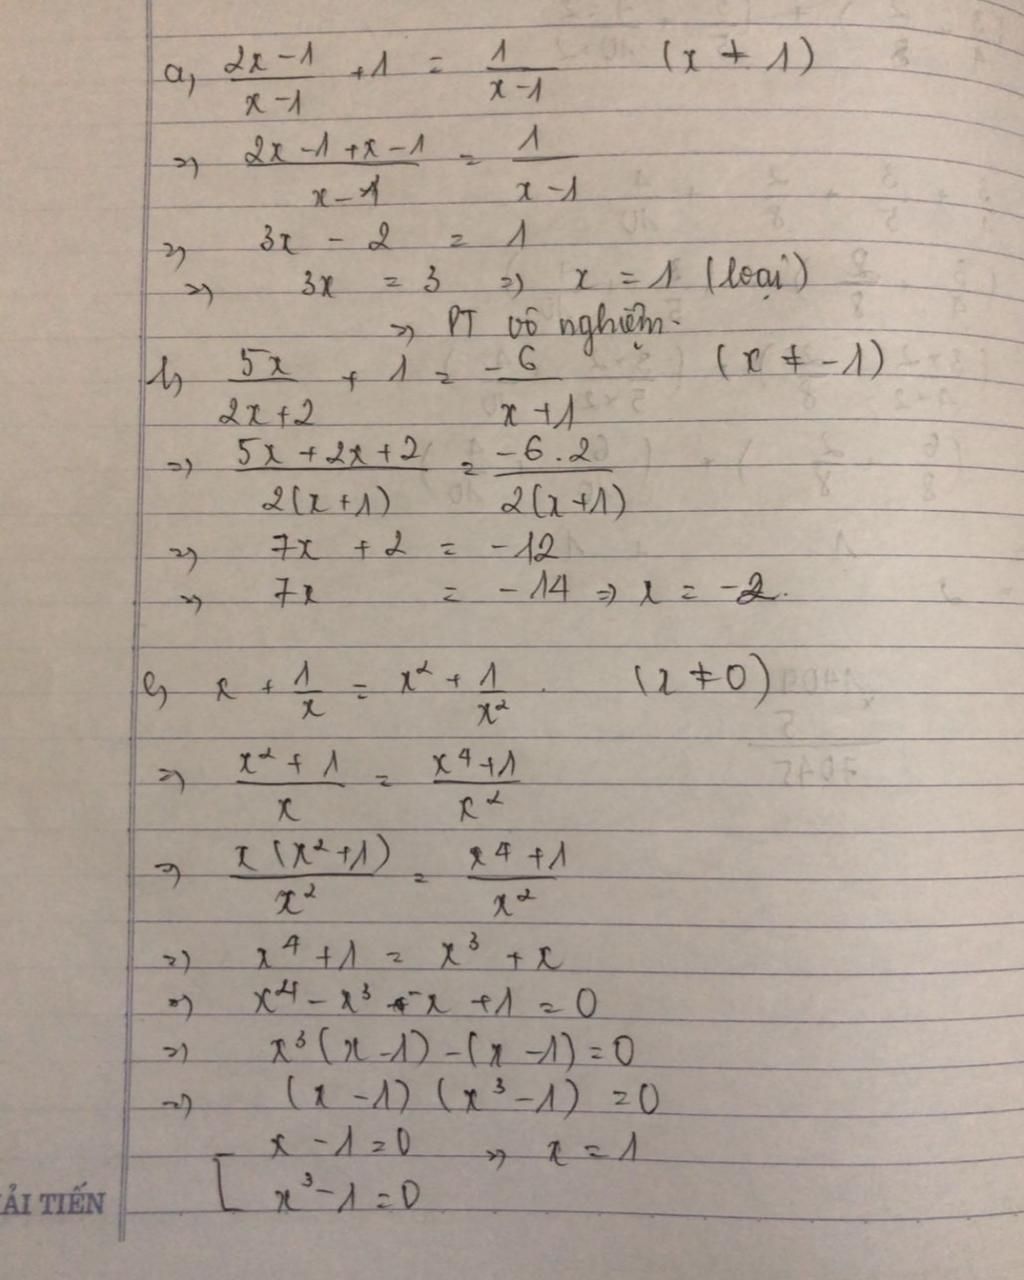 a, (2x-1)/(x-1) + 1 = 1/(x-1) (x ≠ 1)
=> (2x-1+x-1)/(x-1) = 1/(x-1)
=> 3x - 2 = 1
=> 3x = 3 => x = 1 (loại)
=> PT vô nghiệm.
b, 5x/(2x+2) + 1 = -6/(x+1) (x ≠ -1)
=> (5x+2x+2)/(2(x+1)) = (-6.2)/(2(x+1))
=> 7x + 2 = -12
=> 7x = -14 => x = -2.
c, x + 1/x = x² + 1/x². (x ≠ 0)
=> (x²+1)/x = (x⁴+1)/x²
=> (x(x²+1))/x² = (x⁴+1)/x²
=> x⁴ + 1 = x³ + x
=> x⁴ - x³ - x + 1 = 0
=> x³(x-1) - (x-1) = 0
=> (x-1)(x³-1) = 0
[ x - 1 = 0 => x = 1
x³ - 1 = 0
ẢI TIẾN